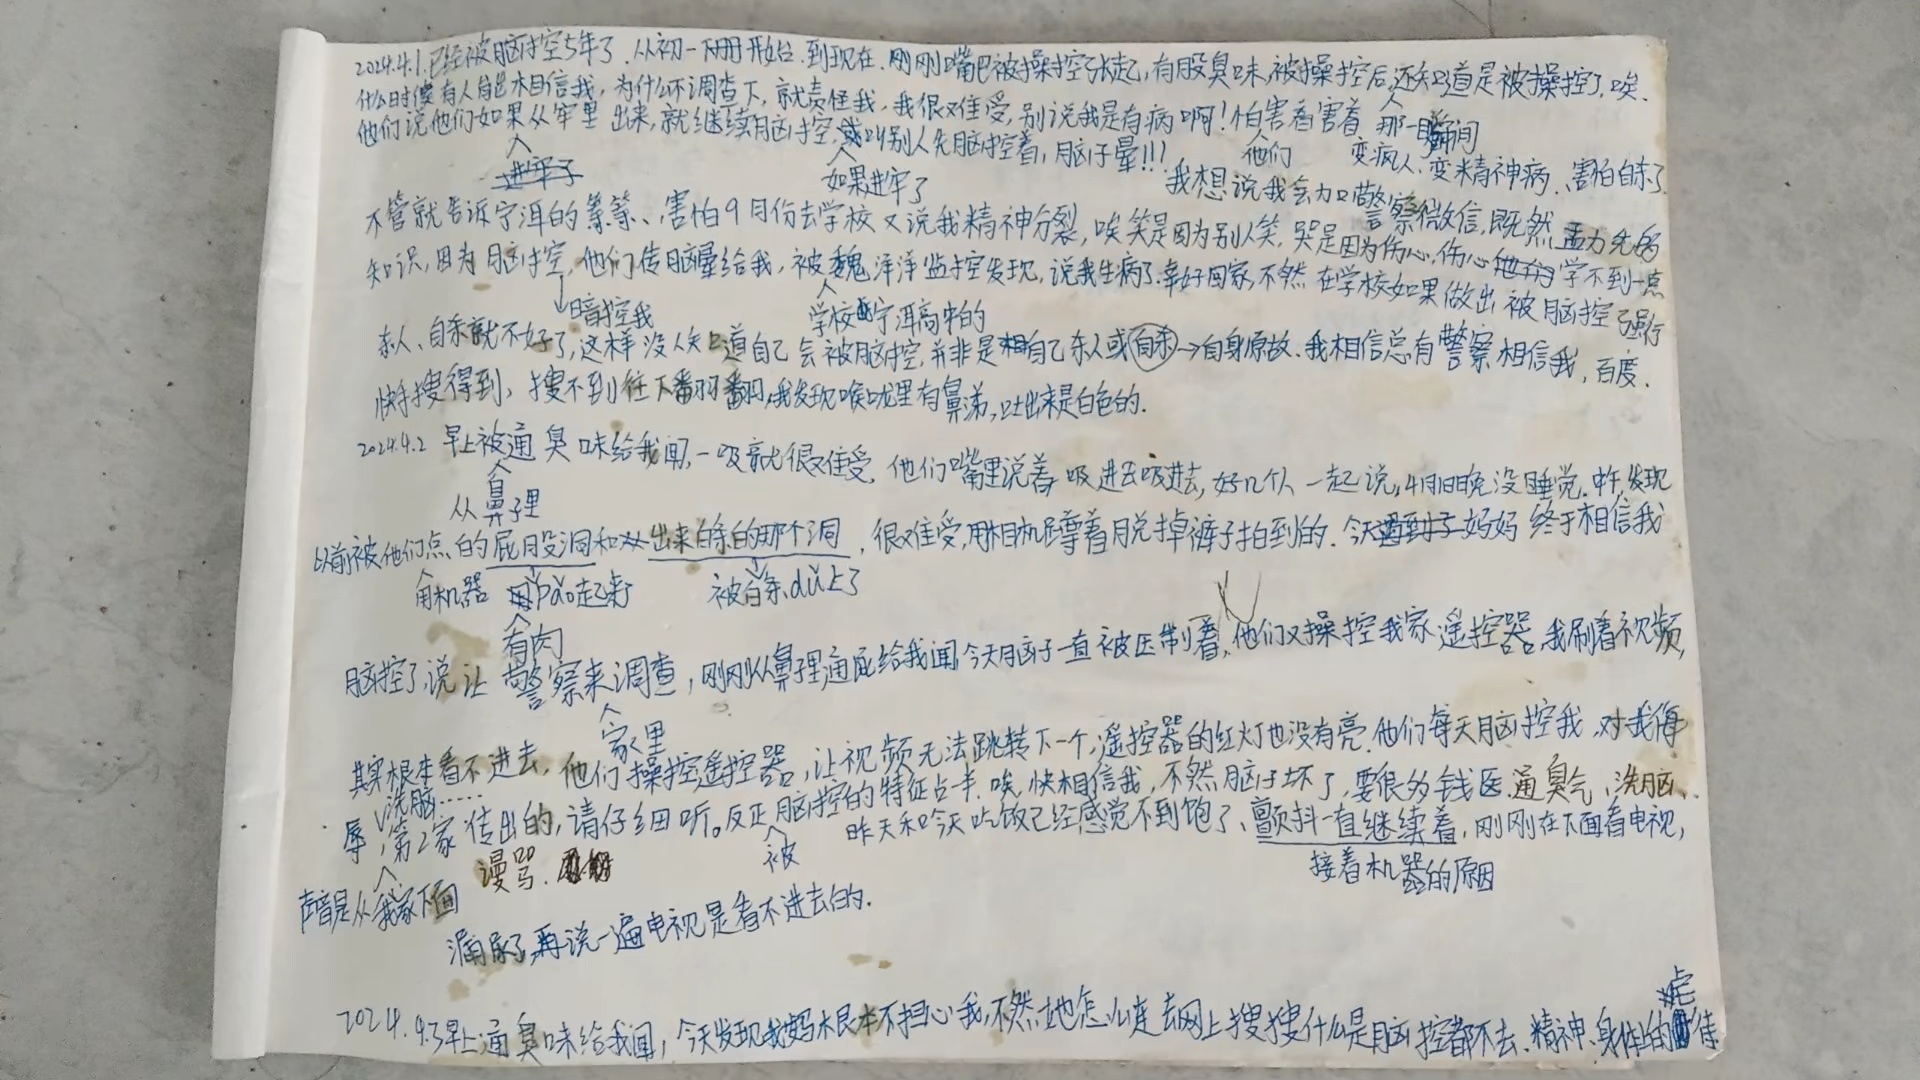 2024.4.1.已经被脑控5年了.从初一下册开始.到现在.刚刚嘴巴被操控张起,有股臭味,被操控后,还知道是被操控了,唉.
什么时候有人能相信我,为什么不调查下,就责怪我,我很难受,别说我是有病啊!怕害着害着 那一瞬间
他们说他们如果从牢里出来,就继续脑控,或叫别人先脑控着,脑子晕!!! 他们 变疯人、变精神病、害怕自杀了
进牢子 如果进牢了 我想说我会加警察微信,既然
不管就告诉宁洱的等等、害怕9月份去学校又说我精神分裂,唉笑是因为别人笑,哭是因为伤心,伤心他们学不到一点
知识,因为脑控,他们传脑晕给我,被魏洋洋监控发现,说我生病了.幸好回家,不然在学校如果做出被脑控了强行
暗控我 学校宁洱高中的
杀人、自杀就不好了,这样没人知道自己会被脑控,并非是自己杀人或自杀→自身原故.我相信总有警察相信我,百度.
快手搜得到,搜不到往下番羽番羽,我发现喉咙里有鼻涕,吐出来是白色的.
2024.4.2 早上被通臭味给我闻,一吸就很难受,他们嘴里说着吸进去吸进去,好几个人一起说,4月1日晚没睡觉.中午,发现
从鼻子里
以前被他们点的屁股洞和从出来白条的那个洞,很难受,用相机蹲着脱掉裤子拍到的.今天妈妈终于相信我
用机器 pào起来 被白条dǔ上了
有肉
脑控了,说让警察来调查,刚刚从鼻子里通屁给我闻,今天脑子一直被压制着,他们又操控我家遥控器,我刷着视频,
家里
其实根本看不进去,他们操控遥控器,让视频无法跳转下一个,遥控器的红灯也没有亮.他们每天脑控我,对我侮
洗脑……
辱,第2家传出的,请仔细听。反正脑控的特征占半.唉,快相信我,不然脑子坏了,要很多钱医.通臭气、洗脑、
谩骂. 被 昨天和今天吃饭已经感觉不到饱了、颤抖一直继续着,刚刚在下面看电视,
声音是从我家下面 接着机器的原因
漏尿了,再说一遍电视是看不进去的.
2024.4.3早上通臭味给我闻,今天发现我妈根本不担心我,不然她怎么连去网上搜搜什么是脑控都不去、精神、身体上的虐待